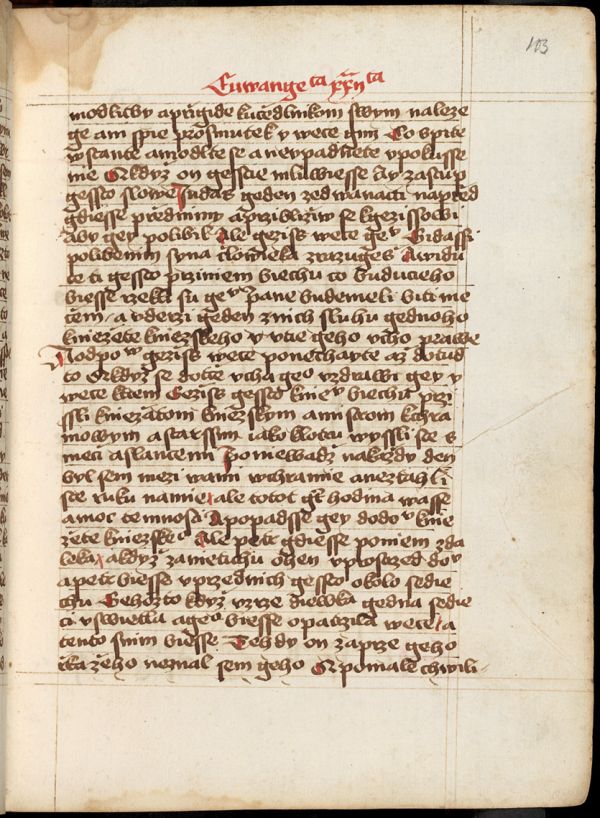 103
Euwangeta xxijta
modlitby a prigide k ucedlnikom swym naleze
ge ani spie pro smutek y wece gim Co spite
wstante a modlte se a neypadnete v pokusse
nie A kdyz on gesscie mluwiesse Ay zastup
gessto slowe Judas geden ze dwanacti napred
gdiesse przed nimi a przibliziw se k gezissowi
aby gey polibil Ale geziss wece gemu Gidassi
polibenim syna czlowieka zrazuges A widu
ce ti gessto przi niem biechu to buducieho
biesse rzekli su gemu pane budemeli biti me
czem a uderzi geden z nich sluhu gednoho
kniezete kniezskeho y utie geho ucho prawe
A odpow geziss wece ponechayte az dotud
to A kdyz se dotcze ucha geo uzdrawi gey y
wece k tiem Geziss gessto k niemu biechu przi
ssli kniezatom kniezskym a miestrom k chra
mowym a starssim iako k lotru wyssli ste s
meci a s lancemi poniewadz na kazdy den
byl sem mezi wami w chramie a neztahli
ste ruku na mie ale totot gest hodina wasse
a moc temnosti A popadsse gey do domu knie
zete kniezskeo Ale petr gdiesse po niem zda
leka a kdyz zanietichu ohen v prostrzed domu
a petr biesse v prziednich gessto okolo sedie
chu Gehozto kdyz uzrze diewka gedna sedie
ci v swietla a geo biesse opatrzila wece a
tento s nim biesse Tehdy on zaprze geho
rka zeno neznal sem geho A po male chwili